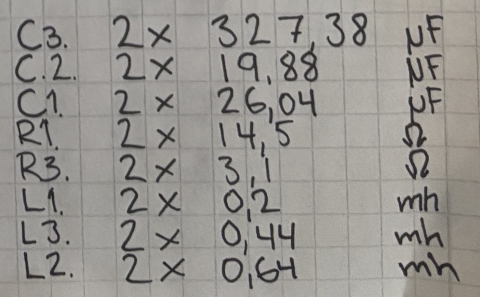 C3. 2x 327,38 µF
C.2. 2x 19,88 µF
C1. 2x 26,04 µF
R1. 2x 14,5 Ω
R3. 2x 3,1 Ω
L1. 2x 0,2 mh
L3. 2x 0,44 mh
L2. 2x 0,64 mh